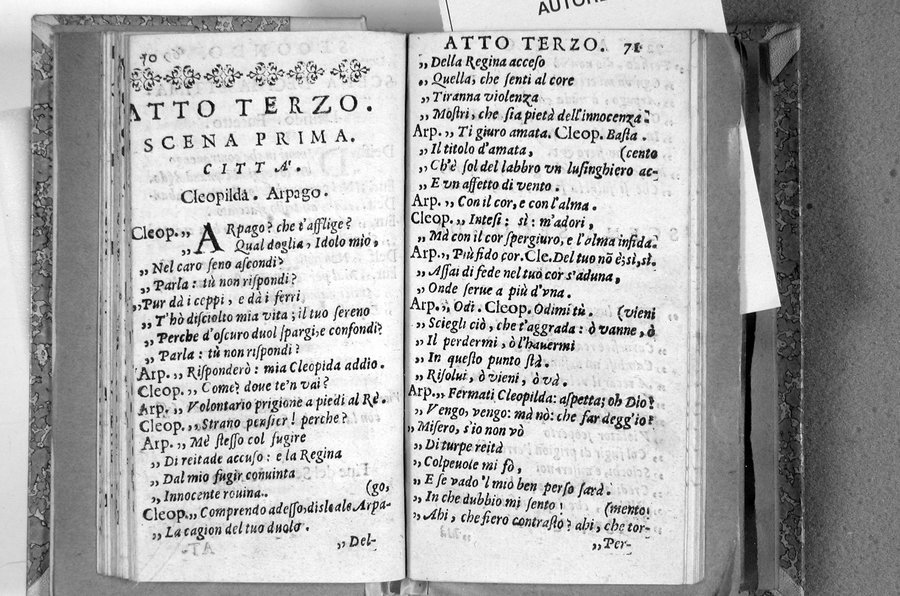 AUTORE
70
ATTO TERZO.
SCENA PRIMA.
CITTA'.
Cleopilda. Arpago.
Cleop.,, ARpago? che t'afflige?
,, Qual doglia, Idolo mio,
,, Nel caro seno ascondi?
,, Parla: tù non rispondi?
,,Pur dà i ceppi, e dà i ferri
,, T'hò disciolto mia vita; il tuo sereno
,, Perche d'oscuro duol spargi, e confondi?
,, Parla: tù non rispondi?
Arp.,, Risponderò: mia Cleopida addio.
Cleop.,, Come? doue te'n vai?
Arp.,, Volontario prigione a piedi al Rè.
Cleop.,, Strano pensier! perche?
Arp.,, Mè stesso col fugire
,, Di reitade accuso: e la Regina
,, Dal mio fugir conuinta
,, Innocente rouina.
(go,
Cleop.,, Comprendo adesso, disleale Arpa-
,, La cagion del tuo duolo.
,, Del-
ATTO TERZO. 71
,, Della Regina acceso
,, Quella, che senti al core
,, Tiranna violenza
,, Mostri, che sia pietà dell'innocenza.
Arp.,, Ti giuro amata. Cleop. Basta.
,, Il titolo d'amata, (cento
,, Ch'è sol del labbro vn lusinghiero ac-
,, E vn affetto di vento.
Arp.,, Con il cor, e con l'alma.
Cleop.,, Intesi: sì: m'adori,
,, Mà con il cor spergiuro, e l'alma infida.
Arp.,, Più fido cor. Cle. Del tuo nõ è; sì, sì.
,, Assai di fede nel tuo cor s'aduna,
,, Onde serue a più d'vna.
Arp.,, Odi. Cleop. Odimi tù. (vieni
,, Sciegli ciò, che t'aggrada: ò vanne, ò
,, Il perdermi, ò l'hauermi
,, In questo punto stà.
,, Risolui, ò vieni, ò và.
Arp.,, Fermati Cleopilda: aspetta; oh Dio!
,, Vengo, vengo: mà nò: che far degg'io?
,, Misero, s'io non vò
,, Di turpe reità
,, Colpeuole mi fò,
,, E se vado 'l mio ben perso sarà.
,, In che dubbio mi sento! (mento!
,, Ahi, che fiero contrasto? ahi, che tor-
,, Per-